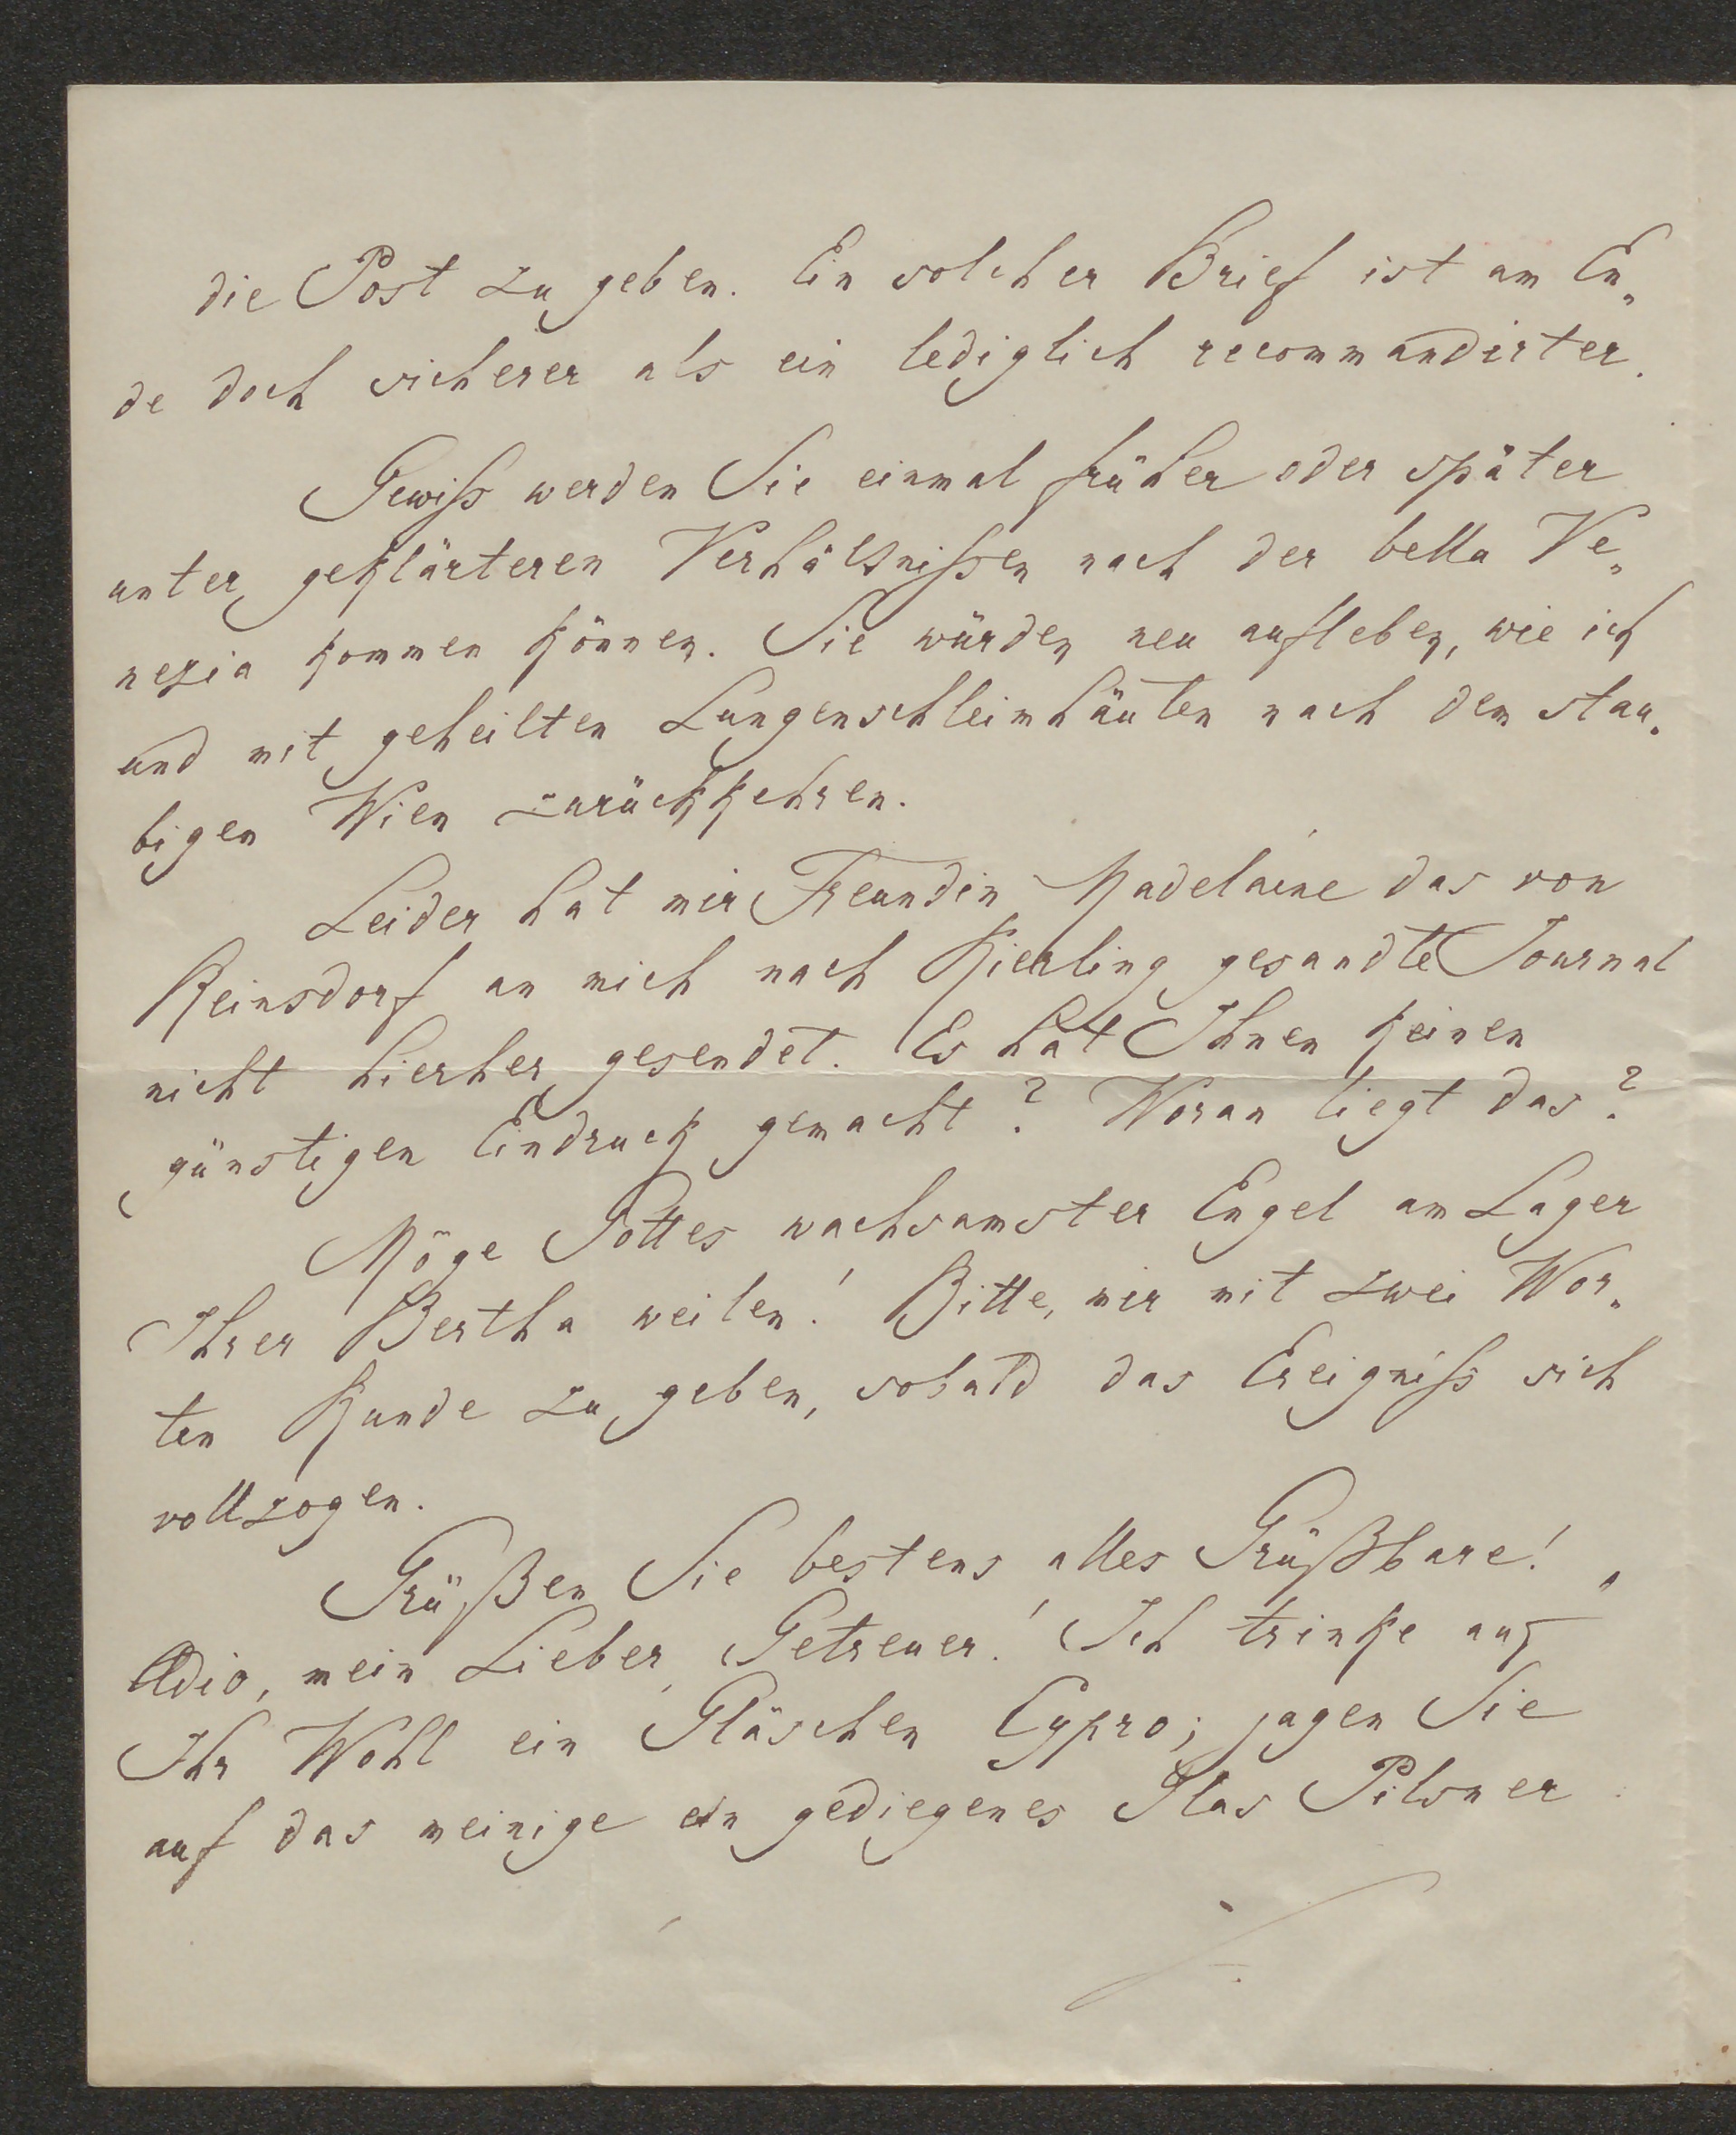 die Post zu geben. Ein solcher Brief ist am En„
de doch sicherer als ein lediglich recommandirter.
Gewiß werden Sie einmal früher oder später
unter geklärteren Verhältnißen nach der bella Ve„
nezia kommen können. Sie würden neu aufleben, wie ich
und mit geheilten Lungenschleimhäuten nach dem stau„
bigen Wien zurückkehren.
Leider hat mir Freundin Madelaine das von
Reinsdorf an mich nach Kierling gesandte Journal
nicht hierher gesendet. Es hat Ihnen keinen
günstigen Eindruck gemacht? Woran liegt das?
Möge Gottes wachsamster Engel am Lager
Ihrer Bertha weilen! Bitte, mir mit zwei Wor„
ten Kunde zu geben, sobald das Ereigniß sich
vollzogen.
Grüßen Sie bestens alles Grüßbare!
Adio, mein Lieber, Getreuer! Ich trinke auf
Ihr Wohl ein Gläschen Cypro; jagen Sie
auf das meinige ein gediegenes Glas Pilsner